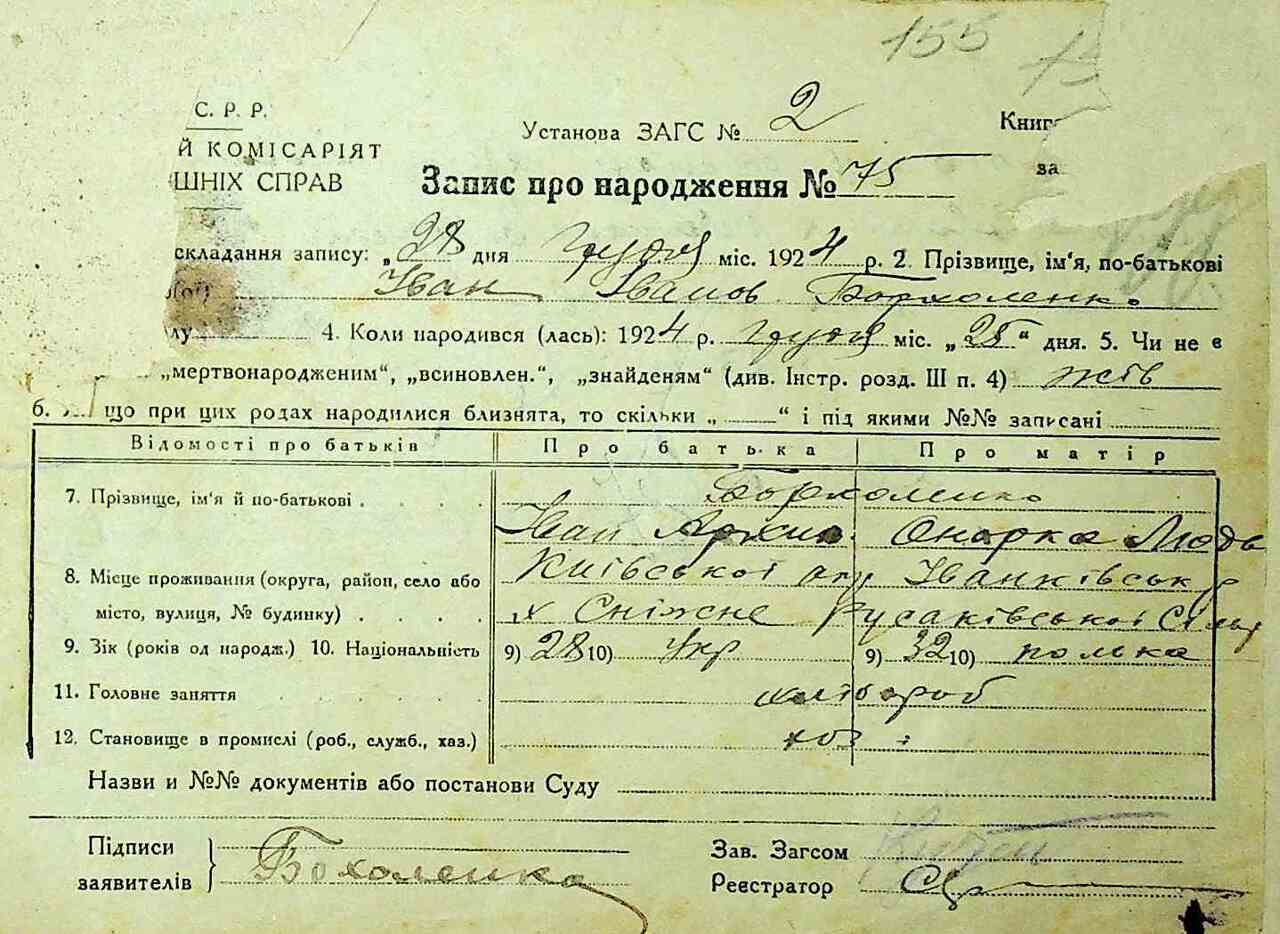 155
С. Р. Р.
Установа ЗАГС № 2
Книг
Й КОМІСАРІЯТ
ШНІХ СПРАВ
Запис про народження № 75
за
складання запису: „28 дня грудня міс. 1924 р. 2. Прізвище, ім'я, по-батькові
ної) Іван Іванов. Борхоленко
лу 4. Коли народився (лась): 1924 р. грудня міс. „25“ дня. 5. Чи не є
„мертвонародженим“, „всиновлен.“, „знайденям“ (див. Інстр. розд. III п. 4) жів
6. що при цих родах народилися близнята, то скільки „ “ і під якими №№ записані
Відомості про батьків Про батька Про матір
7. Прізвище, ім'я й по-батькові Борхоленко
Іван Онарка Людв
8. Місце проживання (округа, район, село або Київської окр Іванківськ
місто, вулиця, № будинку) х Сніжне Русаківської Сіль
9. Зік (років од народж.) 10. Національність 9) 28 10) Укр 9) 32 10) полька
11. Головне заняття хлібороб
12. Становище в промислі (роб., служб., хаз.) хоз
Назви и №№ документів або постанови Суду
Підписи
заявителів Бохоленка
Зав. Загсом
Реєстратор